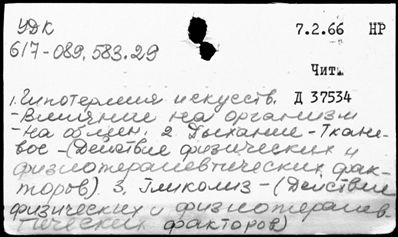 УДК
7.2.66 НР
617-089.583.29
Чит.
1. Гипотермия искусств. Д 37534
- Влияние на организм
- На обмен. 2. Дыхание - Ткане-
вое - (Действие физических и
физиотерапевтических фак-
торов). 3. Гликолиз - (Действие
физических и физиотерапев-
тических факторов)